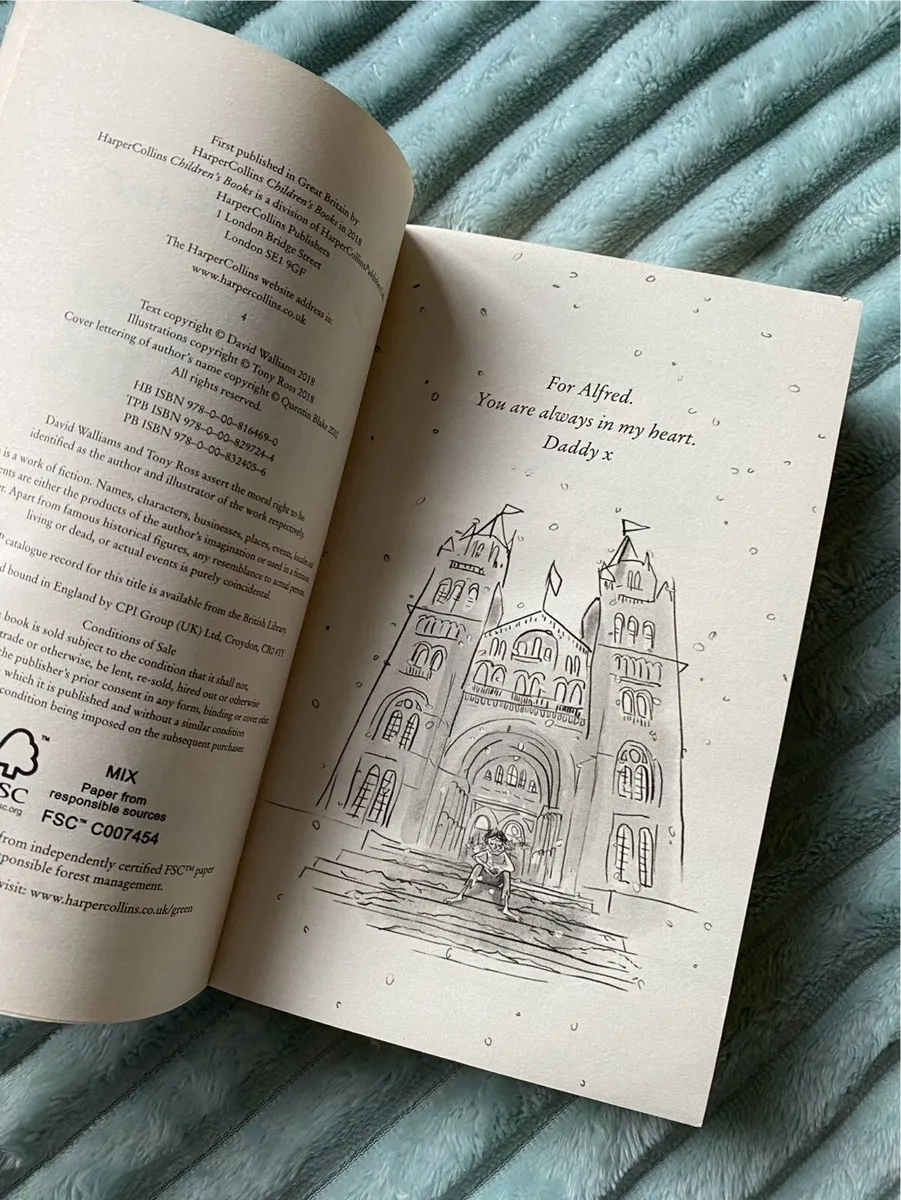 First published in Great Britain by
HarperCollins Children's Books in 2018
HarperCollins Children's Books is a division of HarperCollinsPublishers Ltd,
HarperCollins Publishers
1 London Bridge Street
London SE1 9GF
The HarperCollins website address is:
www.harpercollins.co.uk
4
Text copyright © David Walliams 2018
Illustrations copyright © Tony Ross 2018
Cover lettering of author's name copyright © Quentin Blake 2010
All rights reserved.
HB ISBN 978–0–00–816469–0
TPB ISBN 978–0–00–829724–4
PB ISBN 978–0–00–832405–6
David Walliams and Tony Ross assert the moral right to be
identified as the author and illustrator of the work respectively.
is a work of fiction. Names, characters, businesses, places, events, locales and
are either the products of the author's imagination or used in a fictitious
Apart from famous historical figures, any resemblance to actual persons,
living or dead, or actual events is purely coincidental.
catalogue record for this title is available from the British Library.
bound in England by CPI Group (UK) Ltd, Croydon, CR0 4YY
Conditions of Sale
book is sold subject to the condition that it shall not,
trade or otherwise, be lent, re-sold, hired out or otherwise
the publisher's prior consent in any form, binding or cover other
which it is published and without a similar condition
condition being imposed on the subsequent purchaser.
™
MIX
Paper from
responsible sources
FSC™ C007454
from independently certified FSC™ paper
responsible forest management.
visit: www.harpercollins.co.uk/green
For Alfred.
You are always in my heart.
Daddy x